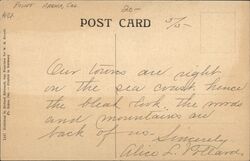 Point Arena, Cal
20-
POST CARD
Our towns are right
on the sea coast, hence
the bleak look. The woods
and mountains are
back of us.
Sincerely
Alice L. Pollard